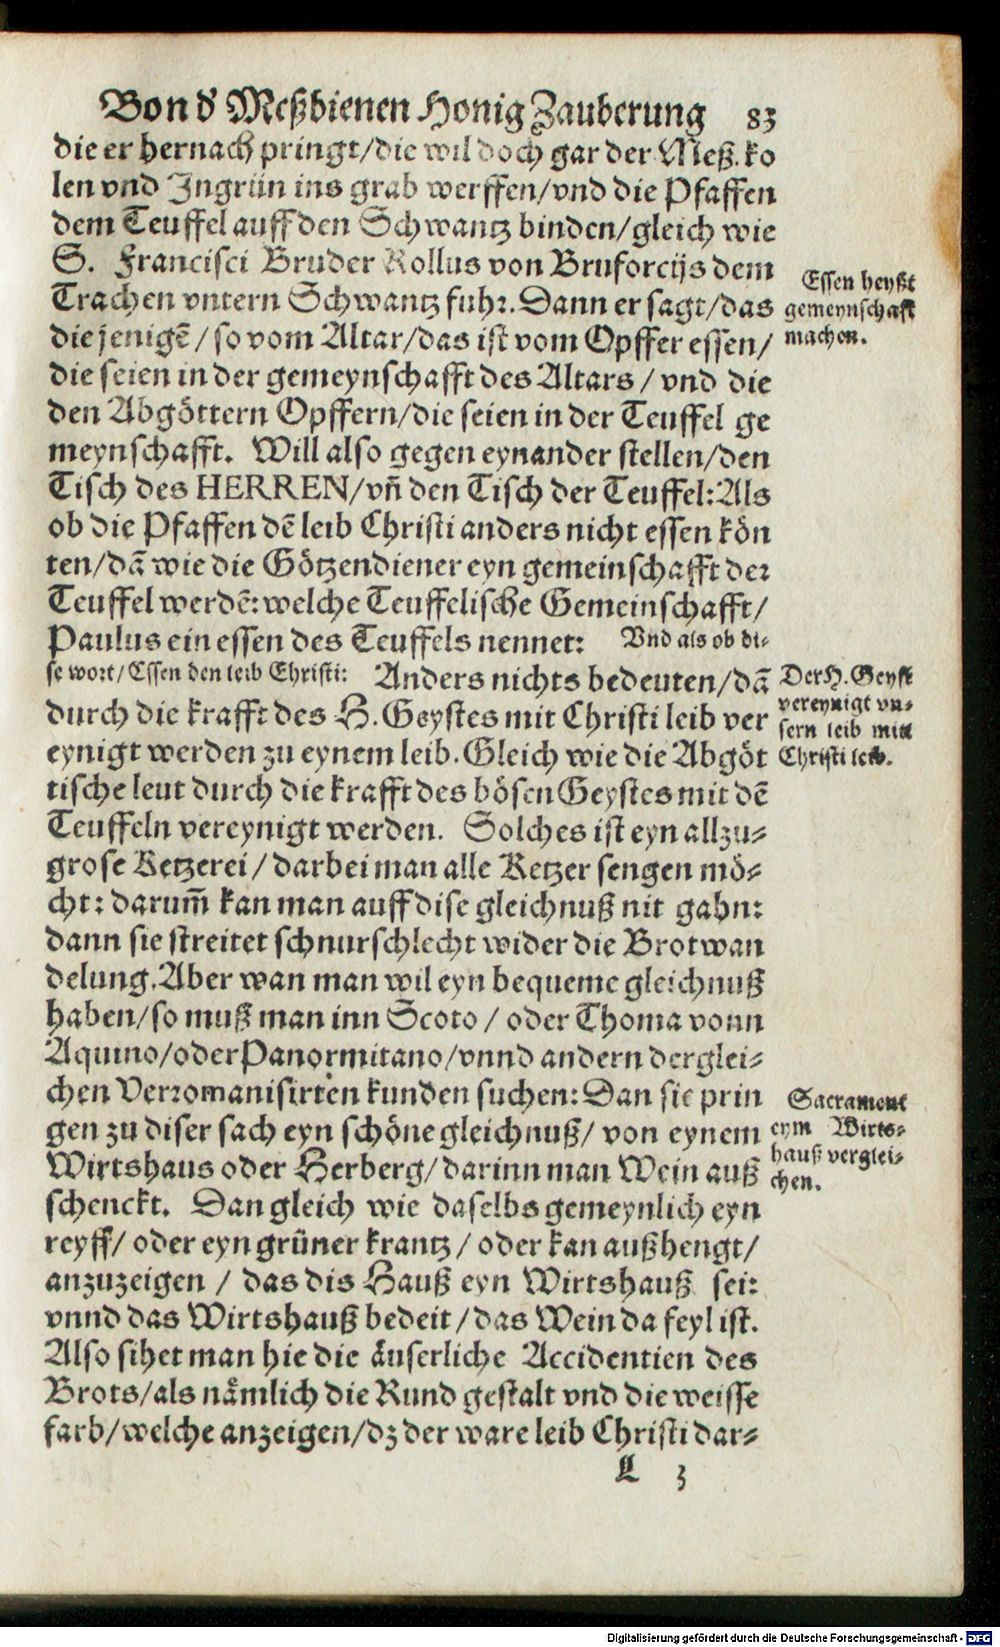 Von d' Meßbienen Honig Zauberung 83
die er hernach pringt/die wil doch gar der Meß ko
len vnd Ingrün ins grab werffen/vnd die Pfaffen
dem Teuffel auff den Schwantz binden/gleich wie
S. Francisci Bruder Rollus von Bruforcijs dem
Trachen vntern Schwantz fuhr. Dann er sagt/das
die jenigē/so vom Altar/das ist vom Opffer essen/
die seien in der gemeynschafft des Altars/vnd die
den Abgöttern Opffern/die seien in der Teuffel ge
meynschafft. Will also gegen eynander stellen/den
Tisch des HERREN/vñ den Tisch der Teuffel: Als
ob die Pfaffen dē leib Christi anders nicht essen kön
ten/dā wie die Götzendiener eyn gemeinschafft der
Teuffel werdē: welche Teuffelische Gemeinschafft/
Paulus ein essen des Teuffels nennet: Vnd als ob di-
se wort/Essen den leib Christi: Anders nichts bedeuten/dā
durch die krafft des H. Geystes mit Christi leib ver
eynigt werden zu eynem leib. Gleich wie die Abgöt
tische leut durch die krafft des bösen Geystes mit dē
Teuffeln vereynigt werden. Solches ist eyn allzu-
grose Ketzerei/darbei man alle Ketzer sengen mö-
cht: darum̄ kan man auff dise gleichnuß nit gahn:
dann sie streitet schnurschlecht wider die Brotwan
delung. Aber wan man wil eyn bequeme gleichnuß
haben/so muß man inn Scoto/oder Thoma vonn
Aquino/oder Panormitano/vnnd andern derglei-
chen Verromanisirten kunden suchen: Dan sie prin
gen zu diser sach eyn schöne gleichnuß/von eynem
Wirtshaus oder Herberg/darinn man Wein auß
schenckt. Dan gleich wie daselbs gemeynlich eyn
reyff/oder eyn grüner krantz/oder kan außhengt/
anzuzeigen/das dis Hauß eyn Wirtshauß sei:
vnnd das Wirtshauß bedeit/das Wein da feyl ist.
Also sihet man hie die äuserliche Accidentien des
Brots/als nämlich die Rund gestalt vnd die weisse
farb/welche anzeigen/dz der ware leib Christi dar-
L 3
Essen heyßt
gemeynschafft
machen.
Der H. Geyst
vereynigt vn-
sern leib mitt
Christi leib.
Sacrament
eym Wirts-
hauß verglei-
chen.
Digitalisierung gefördert durch die Deutsche Forschungsgemeinschaft - DFG